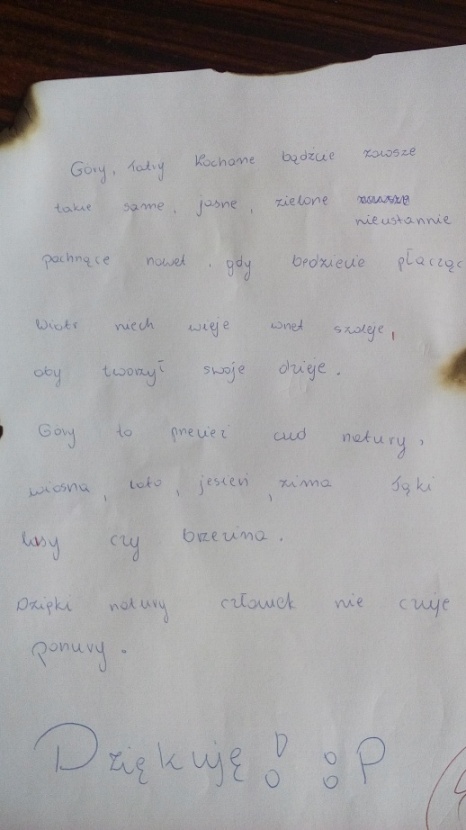 Góry, Tatry kochane będzie zawsze
takie same, jasne, zielone
nieustannie
pachnące nawet. gdy będziecie płacząc
Wiatr niech wieje wnet szaleje,
oby tworzył swoje dzieje.
Góry to przecież cud natury,
wiosna, lato, jesień, zima łąki
lasy czy brzezina.
Dzięki natury człowiek nie czuje
ponury.
Dziękuję! :P